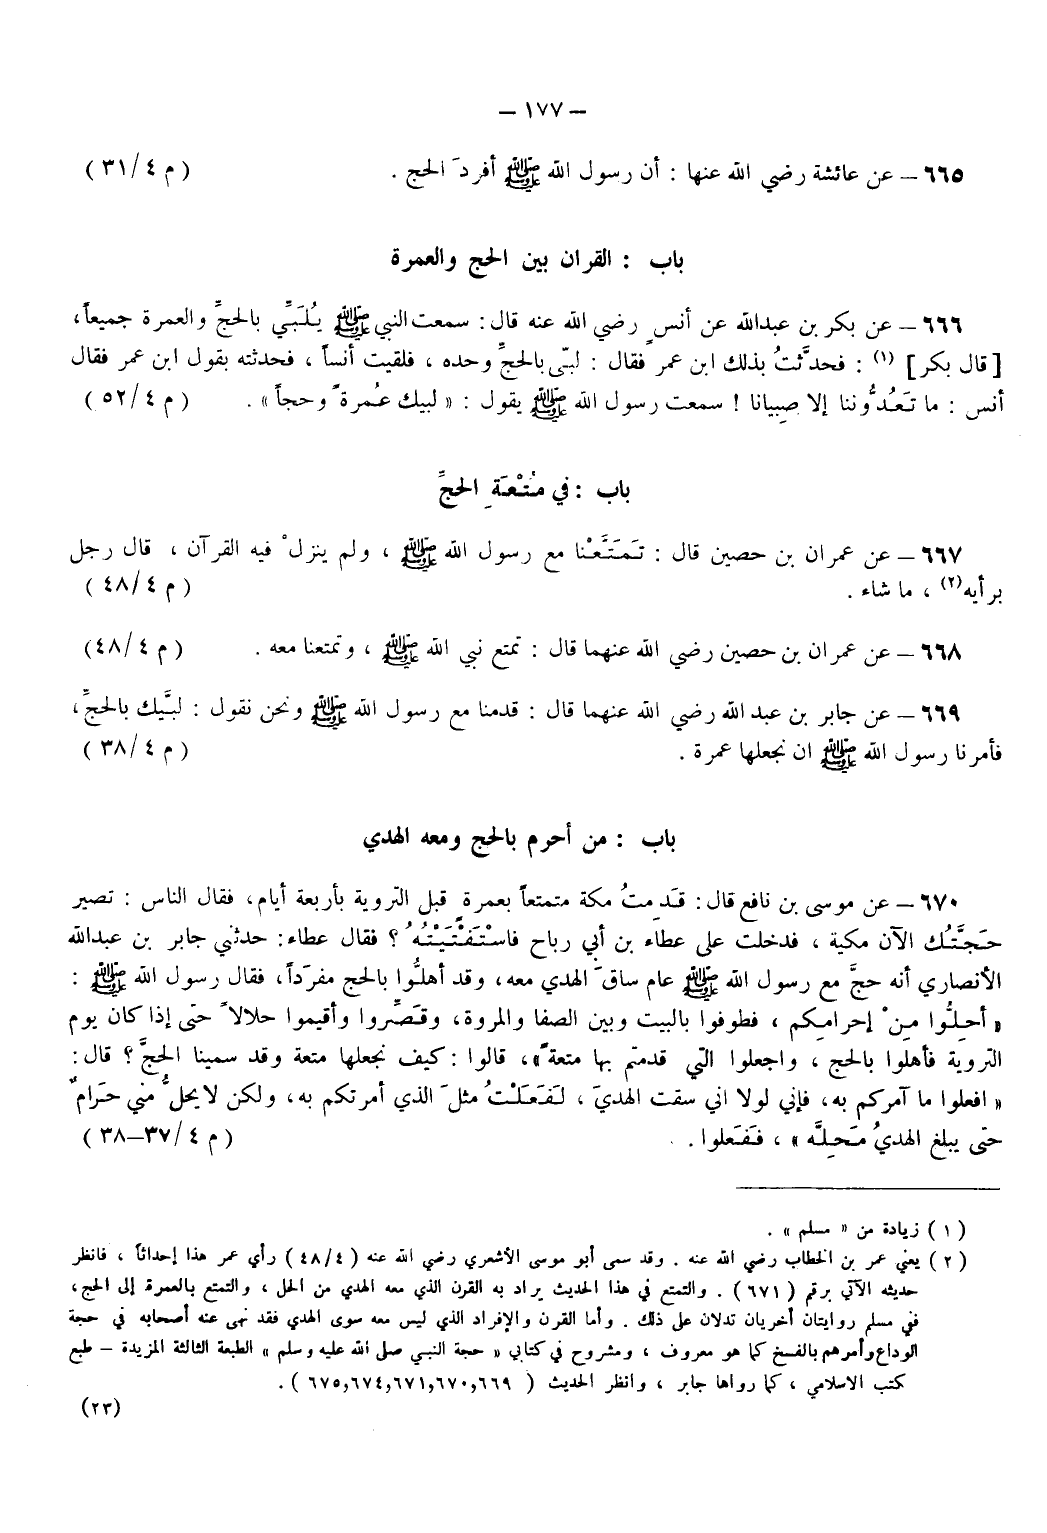 – ١٧٧ –
٦٦٥ – عن عائشة رضي الله عنها : أن رسول الله ﷺ أفردَ الحج . ( م ٤/ ٣١ )
باب : القران بين الحج والعمرة
٦٦٦ – عن بكر بن عبدالله عن أنسٍ رضي الله عنه قال : سمعت النبي ﷺ يُلَبِّي بالحجِّ والعمرة جميعاً،
[ قال بكر ] (١) : فحدَّثتُ بذلك ابن عمر فقال : لبّى بالحجِّ وحده ، فلقيت أنساً ، فحدثته بقول ابن عمر فقال
أنس : ما تَعُدُّوننا إلا صِبيانا ! سمعت رسول الله ﷺ يقول : « لبيك عُمرةً وحجاً » . ( م ٤/ ٥٢ )
باب : في مُتْعَةِ الحجِّ
٦٦٧ – عن عمران بن حصين قال : تَمَتَّعْنا مع رسول الله ﷺ ، ولم ينزلْ فيه القرآن ، قال رجل
برأيه(٢) ، ما شاء . ( م ٤/ ٤٨ )
٦٦٨ – عن عمران بن حصين رضي الله عنهما قال : تمتع نبي الله ﷺ ، وتمتعنا معه . ( م ٤/ ٤٨)
٦٦٩ – عن جابر بن عبد الله رضي الله عنهما قال : قدمنا مع رسول الله ﷺ ونحن نقول : لبَّيك بالحجِّ،
فأمرنا رسول الله ﷺ ان نجعلها عمرة . ( م ٤/ ٣٨ )
باب : من أحرم بالحج ومعه الهدي
٦٧٠ – عن موسى بن نافع قال : قَدِمتُ مكة متمتعاً بعمرةٍ قبل التروية بأربعة أيام، فقال الناس : تصير
حَجَّتُك الآن مكية ، فدخلت على عطاء بن أبي رباح فاسْتَفْتَيْتُهُ ؟ فقال عطاء : حدثني جابر بن عبدالله
الأنصاري أنه حجَّ مع رسول الله ﷺ عام ساقَ الهدي معه، وقد أهلُّوا بالحج مفرَداً، فقال رسول الله ﷺ :
« أحِلُّوا مِنْ إحرامِكم ، فطوفوا بالبيت وبين الصفا والمروة، وقَصِّروا وأقيموا حلالاً حتى إذا كان يوم
التروية فأهلوا بالحج ، واجعلوا التي قدمتم بها متعةً »، قالوا : كيف نجعلها متعة وقد سمينا الحجَّ ؟ قال :
« افعلوا ما آمركم به، فإني لولا اني سقت الهديَ ، لفَعَلْتُ مثلَ الذي أمرتكم به، ولكن لا يحلُّ مني حَرامٌ
حتى يبلغ الهديُ مَحِلَّه » ، فَفَعلوا . ( م ٤/ ٣٧–٣٨ )
( ١ ) زيادة من « مسلم » .
( ٢ ) يعني عمر بن الخطاب رضي الله عنه . وقد سمى أبو موسى الأشعري رضي الله عنه ( ٤/ ٤٨ ) رأي عمر هذا إحداثاً ، فانظر
حديثه الآتي برقم ( ٦٧١ ) . والتمتع في هذا الحديث يراد به القرن الذي معه الهدي من الحل ، والتمتع بالعمرة إلى الحج ،
ففي مسلم روايتان أخريان تدلان على ذلك . وأما القرن والإفراد الذي ليس معه سوى الهدي فقد نهى عنه أصحابه في حجة
الوداع وأمرهم بالفسخ كما هو معروف ، ومشروح في كتابي « حجة النبي صلى الله عليه وسلم » الطبعة الثالثة المزيدة – طبع
كتب الاسلامي ، كما رواها جابر ، وانظر الحديث ( ٦٦٩,٦٧٠,٦٧١,٦٧٤,٦٧٥ ) .
(٢٣)